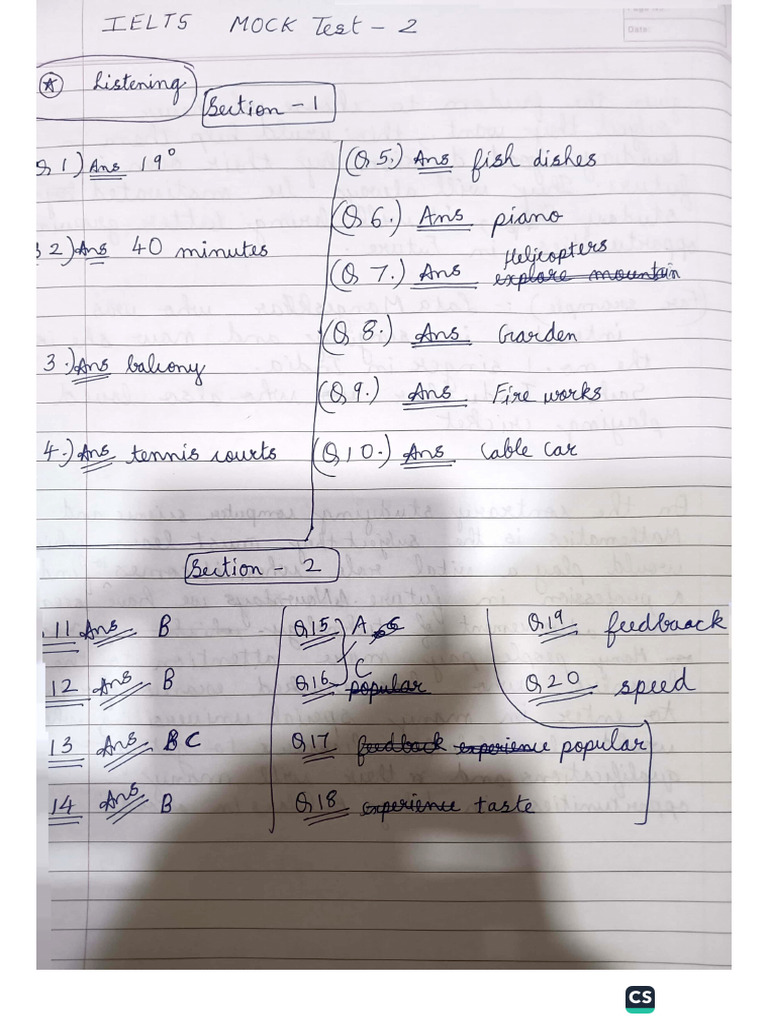 IELTS MOCK Test - 2
Listening
Section - 1
Q 1) Ans 19°
2) Ans 40 minutes
3.) Ans balcony
4.) Ans tennis courts
(Q 5.) Ans fish dishes
(Q 6.) Ans piano
(Q 7.) Ans Helicopters explore mountain
(Q 8.) Ans Garden
(Q 9.) Ans Fire works
(Q 10.) Ans Cable Car
Section - 2
11 Ans B
12 Ans B
13 Ans B C
14 Ans B
Q15 A
Q16 C popular
Q17 feedback experience popular
Q18 experience taste
Q19 feedbaack
Q20 speed
Page No.
Date:
CS